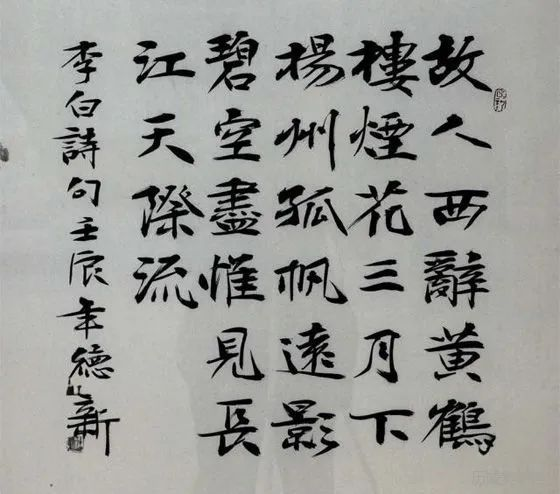 故人西辭黃鶴
樓煙花三月下
楊州孤帆遠影
碧空盡惟見長
江天際流
李白詩句壬辰年德新